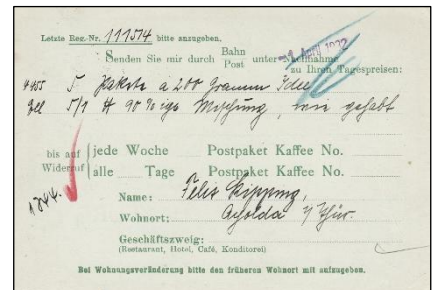 Letzte Reg.-Nr. 111574 bitte anzugeben.
Senden Sie mir durch Bahn Post unter Nachnahme
1. April 1932
zu Ihren Tagespreisen:
5 Pakete a 200 Gramm Idee
5/1 90 %ige Mischung, wie gehabt
bis auf Widerruf
jede Woche Postpaket Kaffee No.
alle Tage Postpaket Kaffee No.
Name: Felix
Wohnort: Apolda i/Thür.
Geschäftszweig:
(Restaurant, Hotel, Café, Konditorei)
Bei Wohnungsveränderung bitte den früheren Wohnort mit anzugeben.